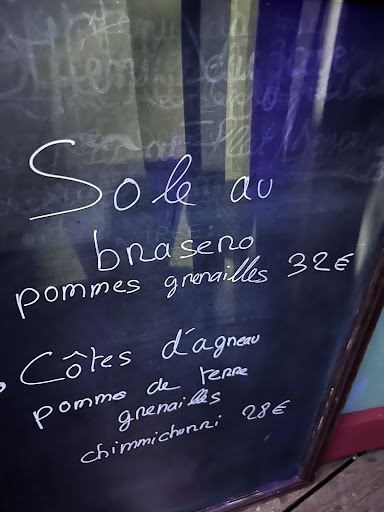 Sole au
brasero
pommes grenailles 32€
Côtes d'agneau
pomme de terre
grenailles
chimmichurri 28€